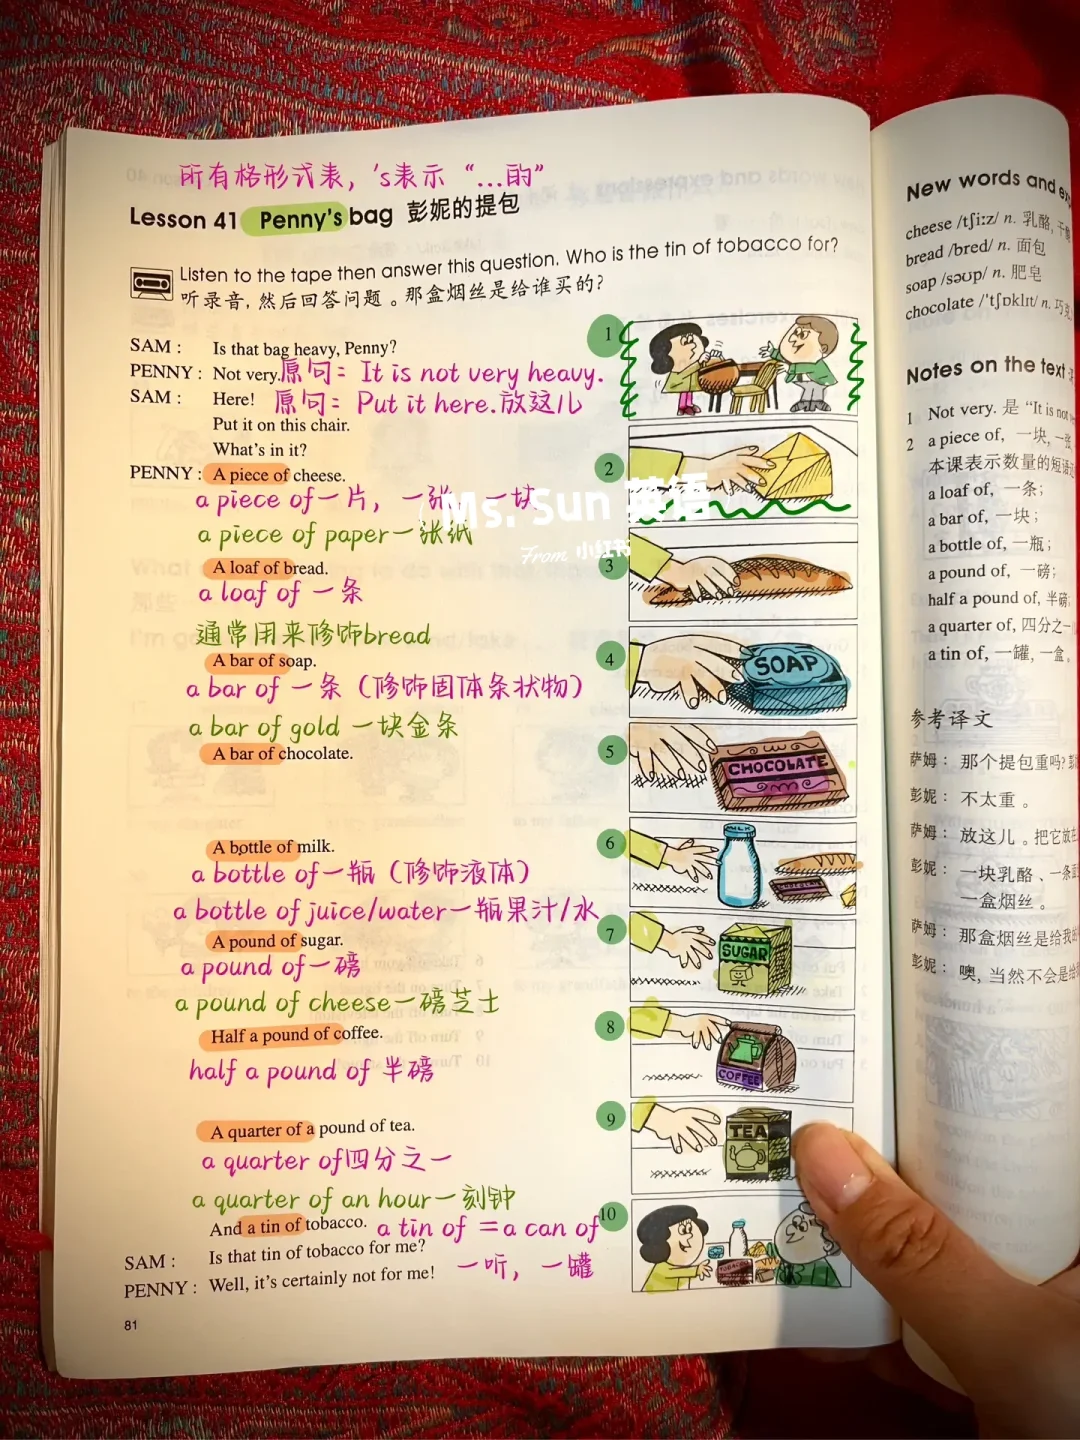 所有格形式表，'s表示“...的”
Lesson 41 Penny's bag 彭妮的提包
Listen to the tape then answer this question. Who is the tin of tobacco for?
听录音，然后回答问题。那盒烟丝是给谁买的?
SAM : Is that bag heavy, Penny?
PENNY : Not very.原句: It is not very heavy.
SAM : Here! 原句: Put it here.放这儿
Put it on this chair.
What's in it?
PENNY : A piece of cheese.
a piece of 一片，一张，一块
a piece of paper一张纸
A loaf of bread.
a loaf of 一条
通常用来修饰bread
A bar of soap.
a bar of 一条（修饰固体条状物）
a bar of gold 一块金条
A bar of chocolate.
A bottle of milk.
a bottle of一瓶（修饰液体）
a bottle of juice/water一瓶果汁/水
A pound of sugar.
a pound of一磅
a pound of cheese一磅芝士
Half a pound of coffee.
half a pound of 半磅
A quarter of a pound of tea.
a quarter of四分之一
a quarter of an hour一刻钟
And a tin of tobacco. a tin of =a can of
SAM : Is that tin of tobacco for me?
PENNY : Well, it's certainly not for me! 一听，一罐
81
1
2
3
4
SOAP
5
CHOCOLATE
6
MILK
CHOCOLATE
7
SUGAR
8
COFFEE
9
TEA
10
TOBACCO
Ms. Sun 英语
From 小红书
New words and
cheese /tʃiːz/ n. 乳酪,
bread /bred/ n. 面包
soap /səʊp/ n. 肥皂
chocolate /'tʃɒklɪt/ n.
Notes on the text
1 Not very. 是 “It is not
2 a piece of, 一块,
本课表示数量的短语
a loaf of, 一条;
a bar of, 一块;
a bottle of, 一瓶;
a pound of, 一磅;
half a pound of, 半磅;
a quarter of, 四分之一
a tin of, 一罐, 一盒。
参考译文
萨姆: 那个提包重吗?
彭妮: 不太重。
萨姆: 放这儿。把它放在
彭妮: 一块乳酪、一条
一盒烟丝。
萨姆: 那盒烟丝是给我的
彭妮: 噢, 当然不会是给